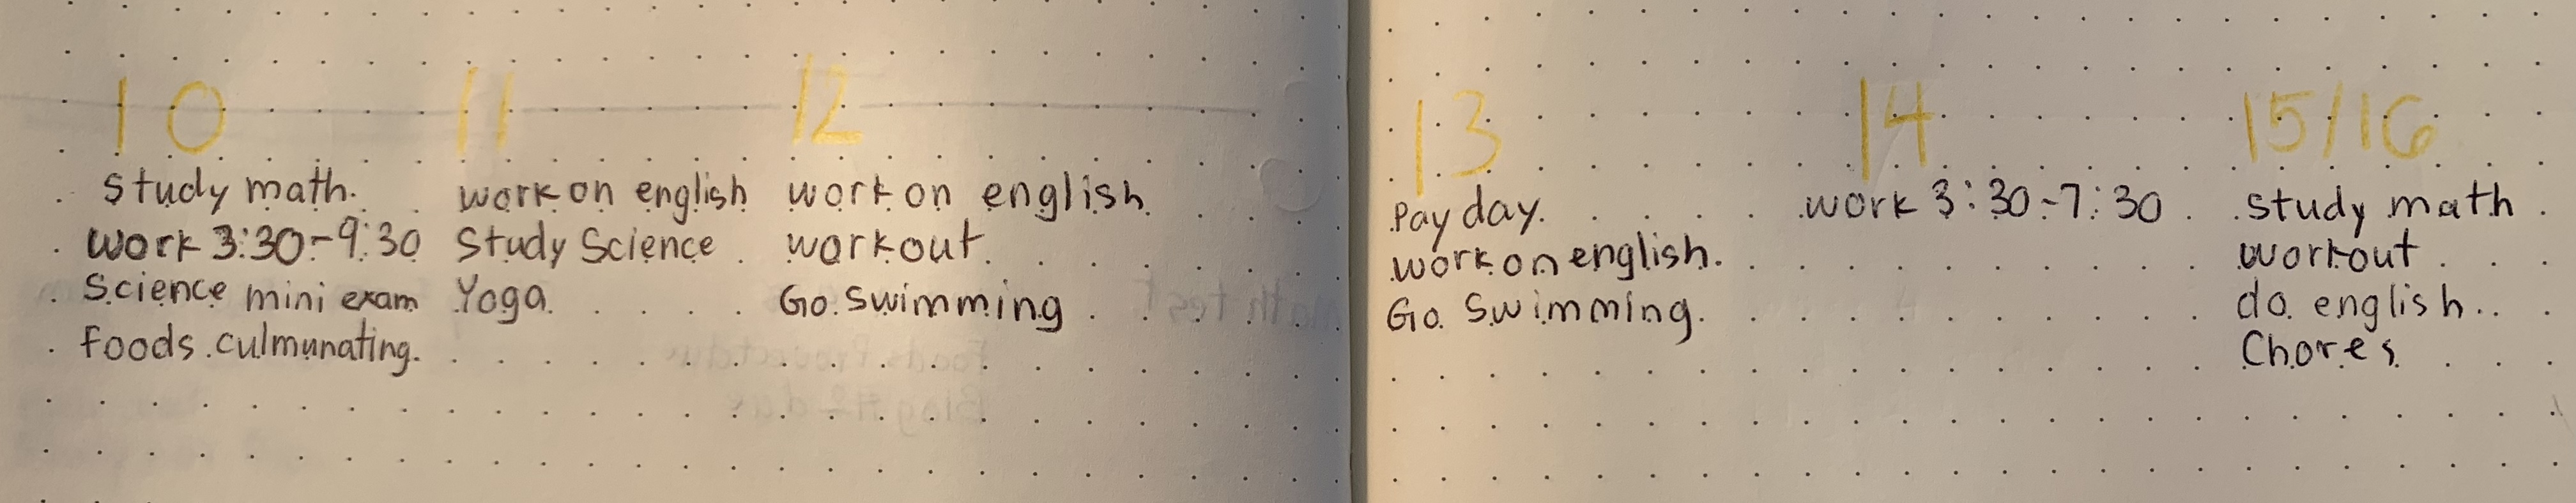 10
Study math.
Work 3:30-9:30
Science mini exam
foods culmunating.
11
work on english
Study Science
Yoga
12
work on english
workout
Go swimming
13
Pay day.
work on english.
Go swimming.
14
work 3:30-7:30
15/16
study math
workout
do english..
Chores